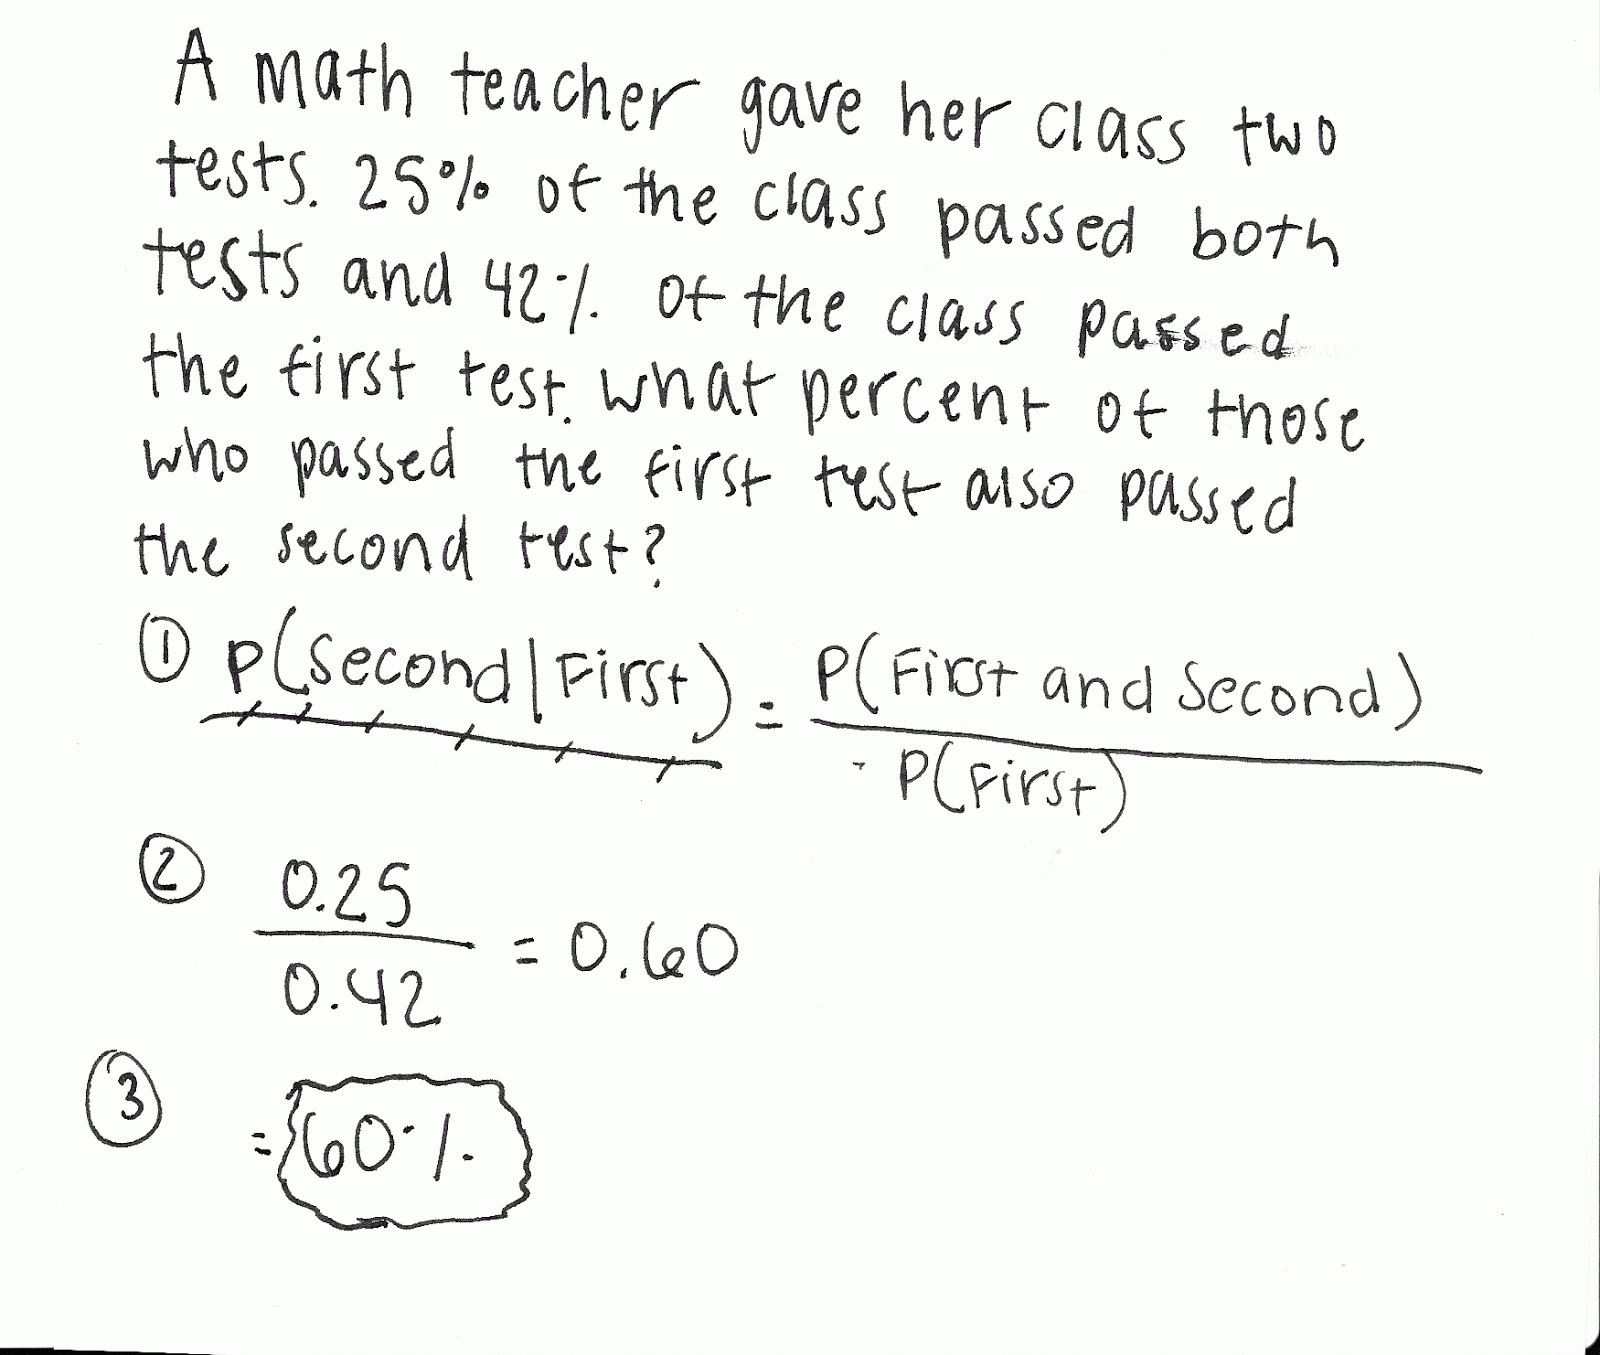 A math teacher gave her class two
tests. 25% of the class passed both
tests and 42% of the class passed
the first test. what percent of those
who passed the first test also passed
the second test?
① P(Second|First) = P(First and Second)
P(First)
② 0.25
0.42
= 0.60
③ = 60%